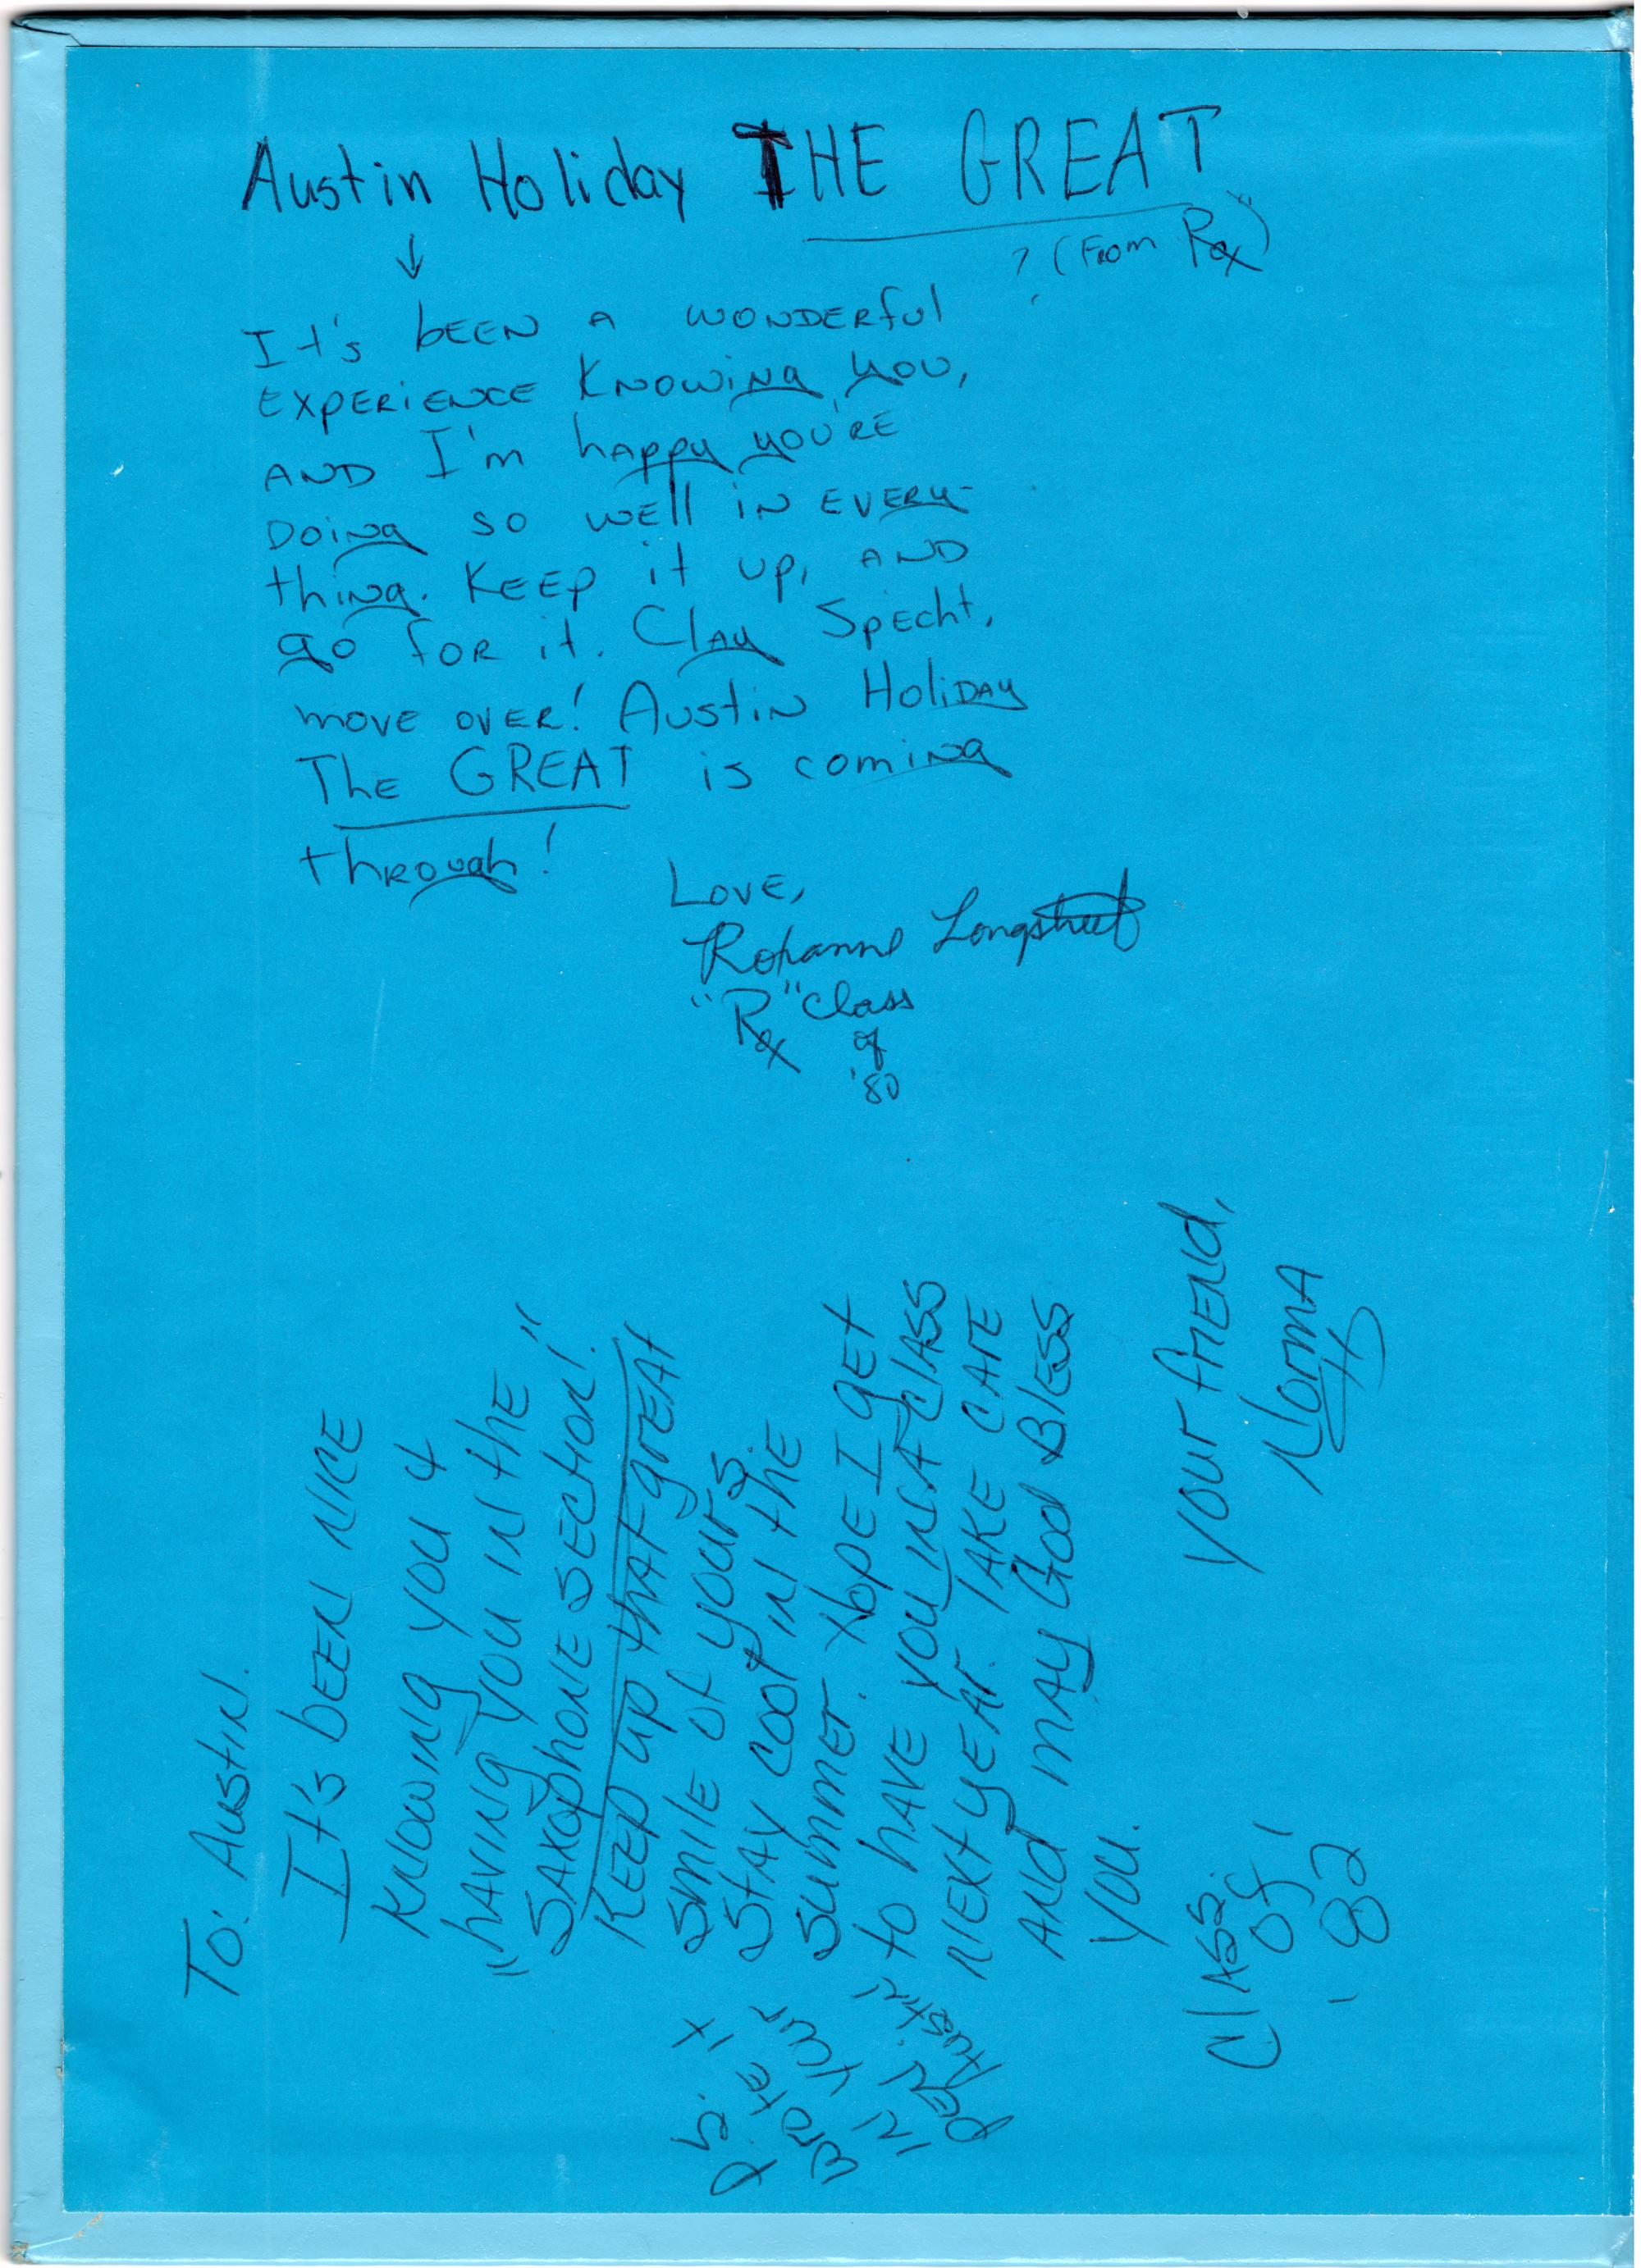 Austin Holiday THE GREAT
? (From Rox")
↓
It's been a wonderful
experience knowing you,
and I'm happy you're
doing so well in every-
thing. Keep it up, and
go for it. Clay Specht,
move over! Austin Holiday
The GREAT is coming
through!
Love,
Roxanne Longstreet
"Rox" Class
of
'80
To: Austin.
It's been nice
knowing you &
"having you in the
saxophone section!"
Keep up that great
smile of yours
stay cool in the
summer. Hope I get
to have you in a class
next year. Take care
and may God Bless
you.
Your friend,
Norma
Class
of
'82'
P.S. I
wrote
in your
pen Austin